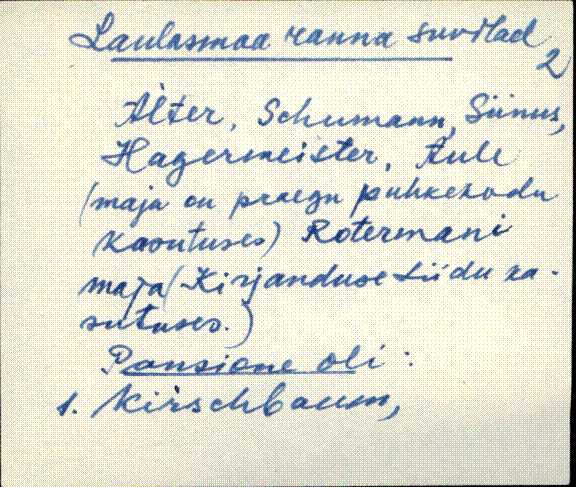 Laulasmaa ranna suvilad
2
Alter, Schumann, Siinus,
Hagermeister, Aule
(maja on praegu puhkekodu
kasutuses) Rotermani
maja (Kirjanduse Liidu ka-
sutuses.)
Pansione oli:
1. Kirschbaum,